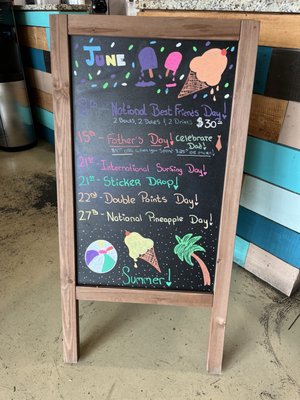 JUNE
8th - National Best Friends Day!
2 Bowls, 2 Dates & 2 Drinks $30
15th - Father's Day! Celebrate Dad!
when you spend
21st - International Surfing Day!
21st - Sticker Drop!
22nd - Double Points Day!
27th - National Pineapple Day!
Summer!